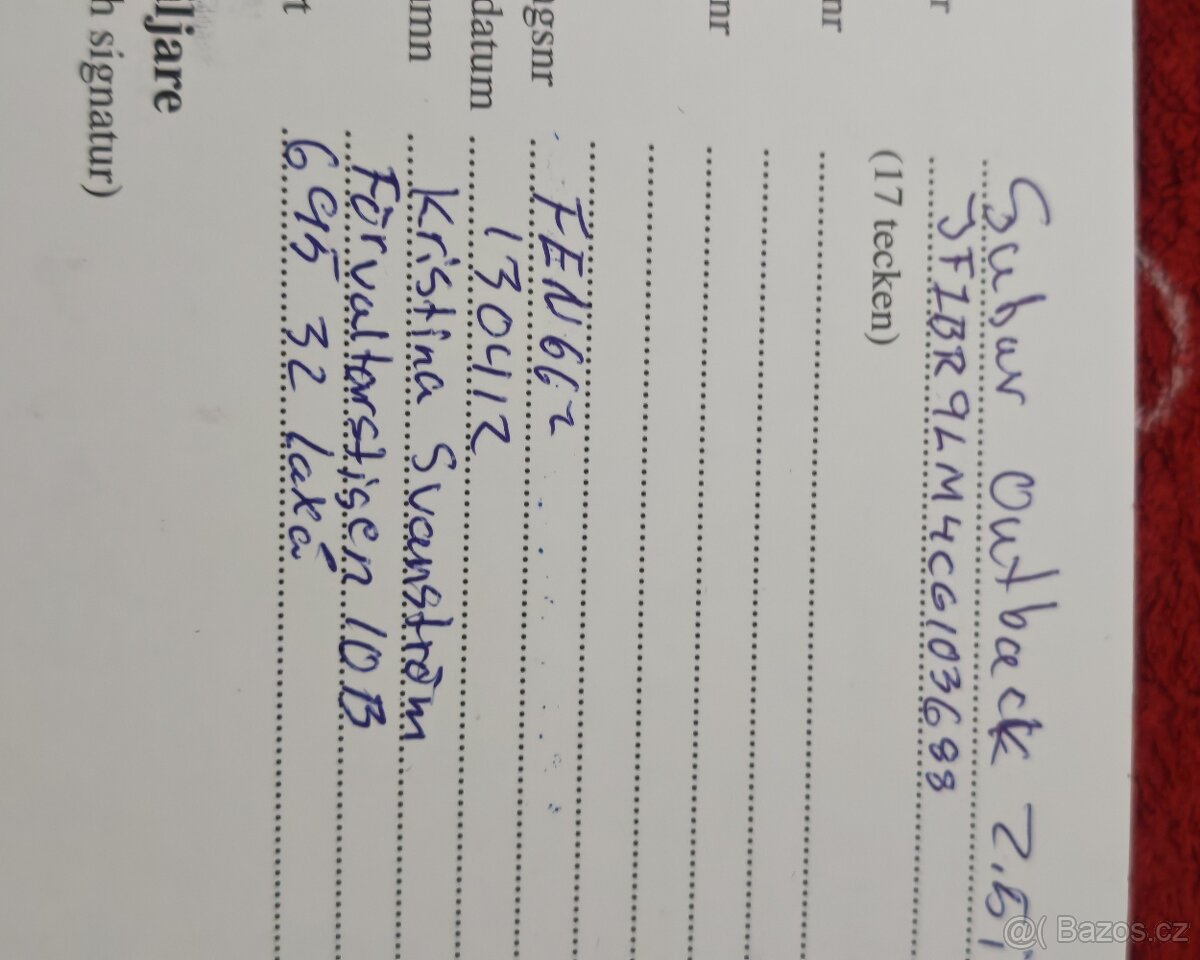 Subaru Outback 2.5i
r JF1BR9LM4CG103688
(17 tecken)
nr
nr
ngsnr FEN662
datum 130412
amn Kristina Svanström
Förvaltarstigen 10B
t 695 32 laxå
ljare
h signatur)
@( Bazos.cz